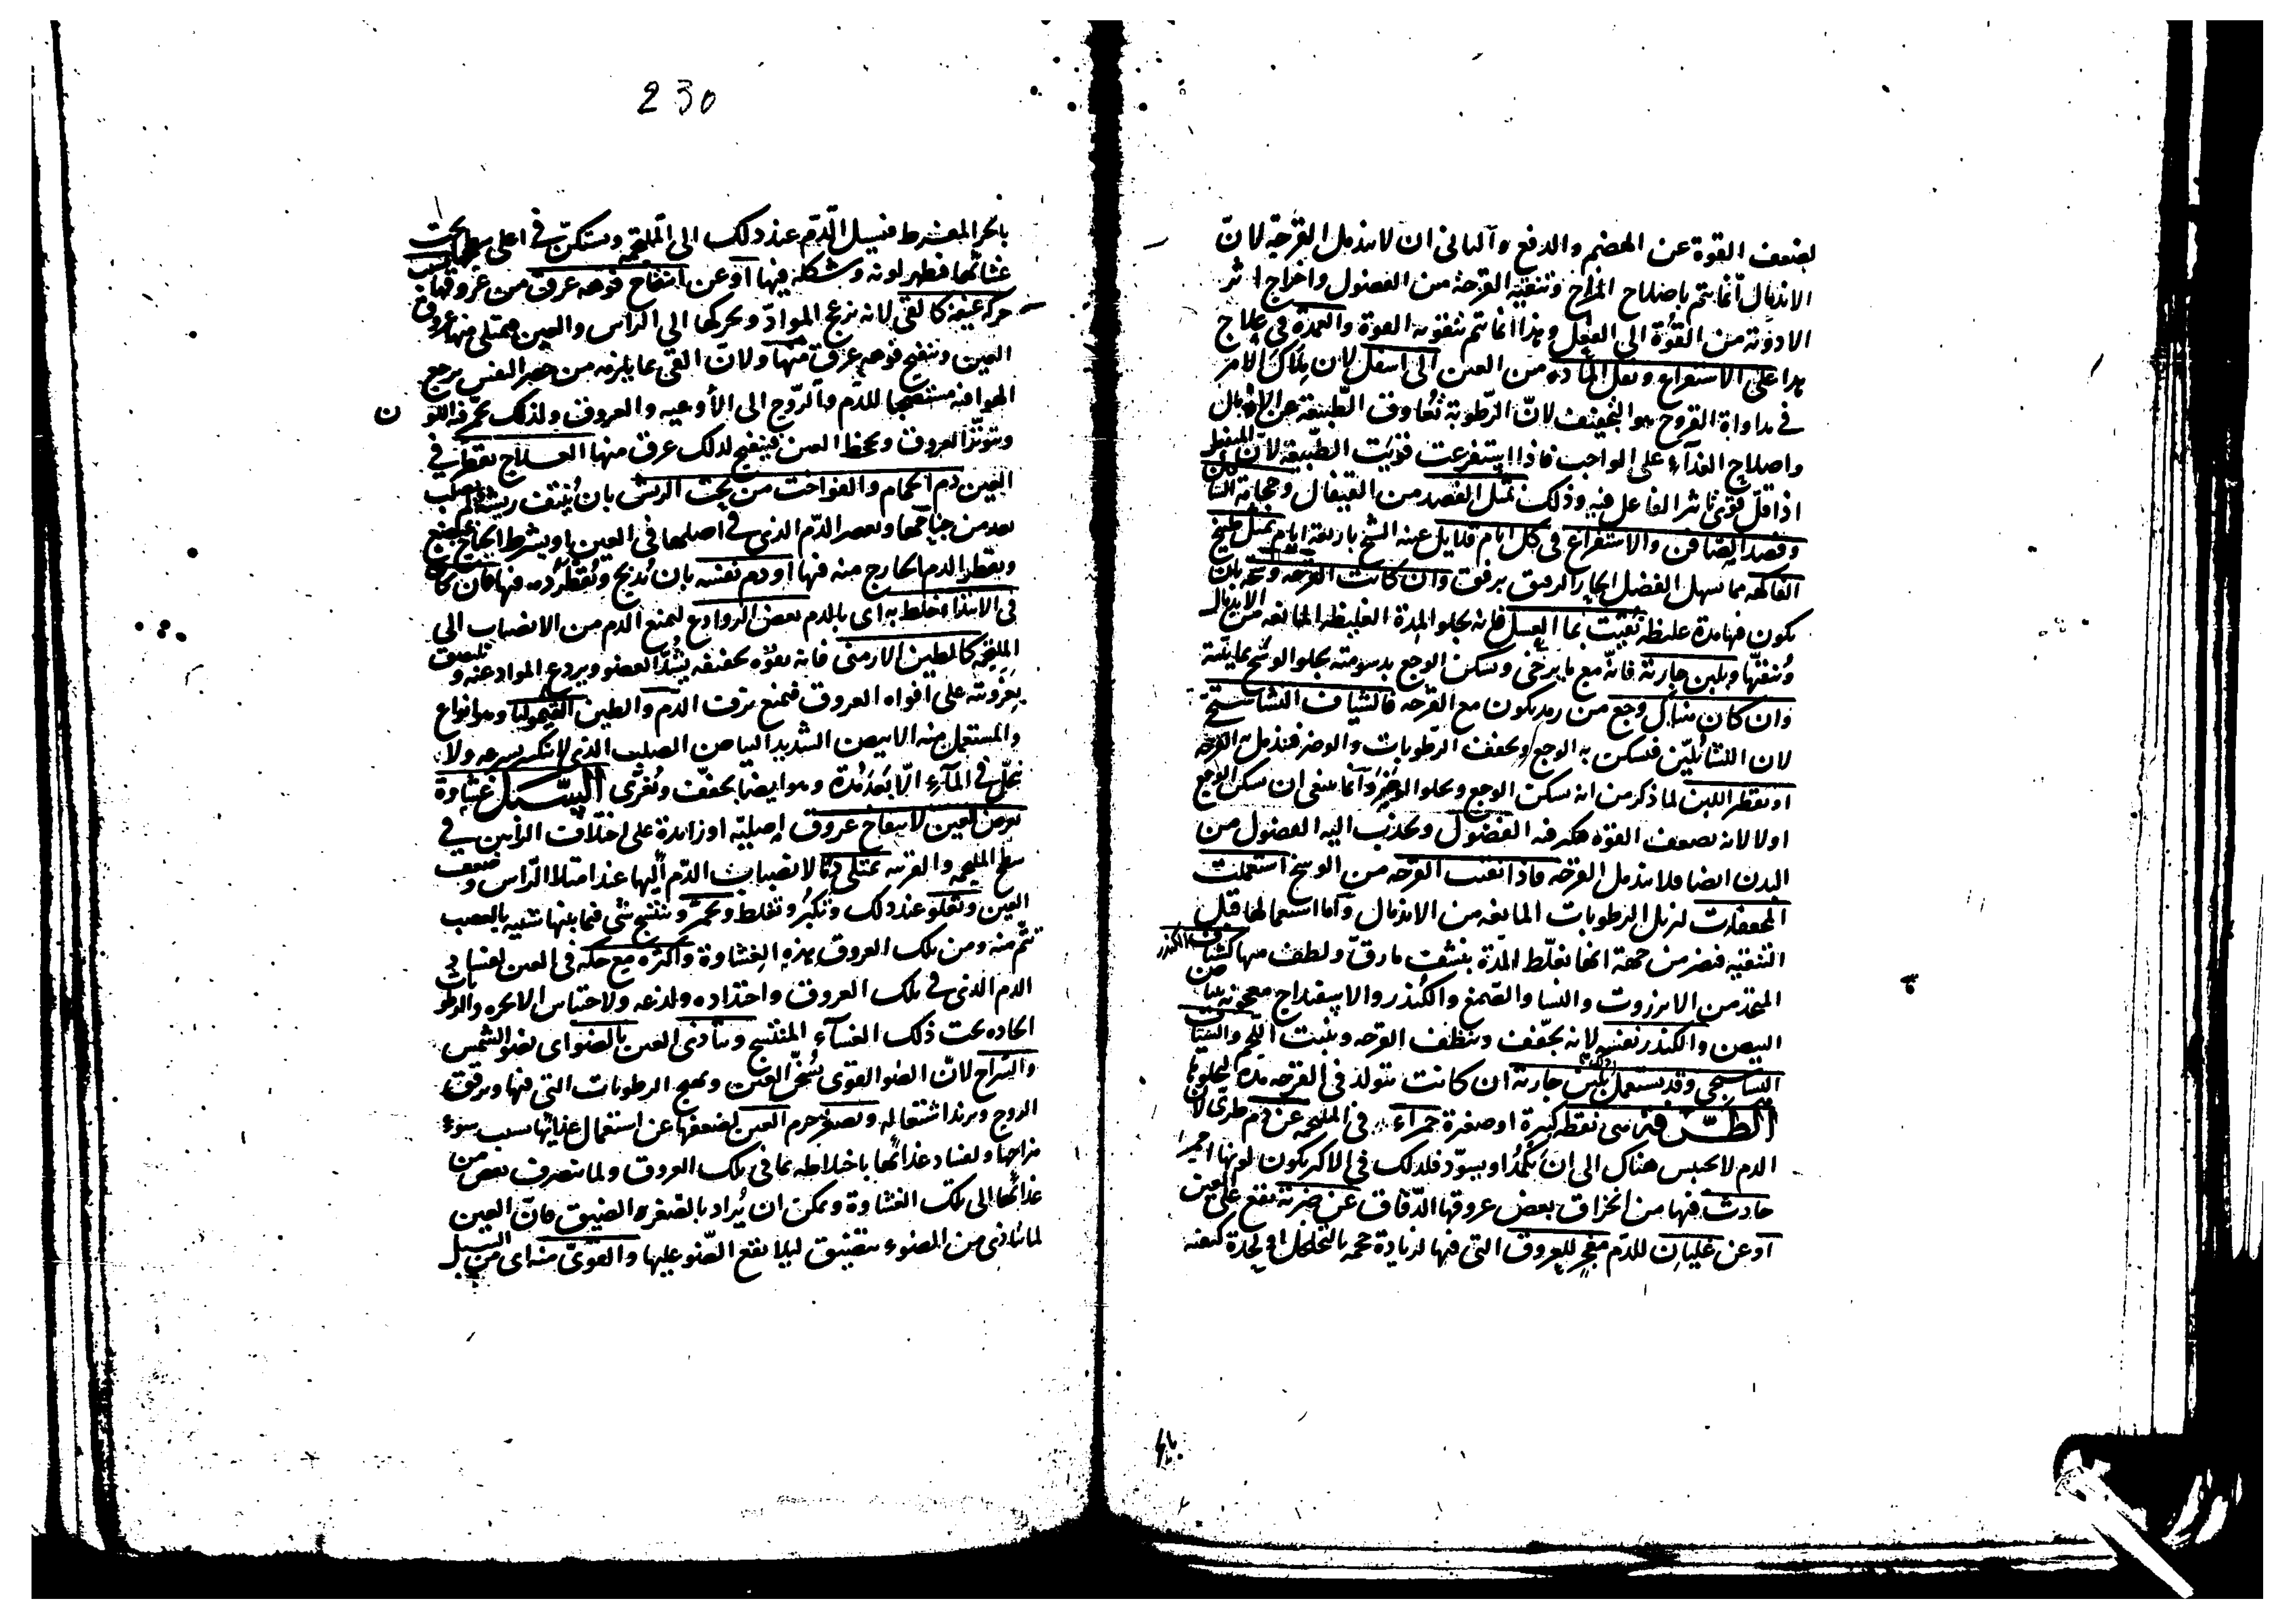 لضعف القوة عن الهضم والدفع والثاني ان لا يندمل القرحة لانّ
الاندمال انما يتم باصلاح المزاج وتنقية القرحة من الفضول واخراج اثر
الادوية من القوة الى الفعل وهذا انما يتم بتقوية القوة والعمدة في علاج
هذا على الاستفراغ ونقل المادة من العين الى اسفل لان ملاك الامر
في مداواة القروح هو التجفيف لانّ الرطوبة تعاوق الطبيعة عن الاندمال
واصلاح الغذاء على الواجب فاذا استفرغت قويت الطبيعة لان المنفعل
اذا قلّ قوى تاثير الفاعل فيه وذلك بمثل الفصد من القيفال وحجامة الساق
وفصد الصافن والاستفراغ في كل ايام قلايل عينه الشيخ باربعة ايام بمثل طبيخ
الفاكهة مما يسهل الفضل الحار الرقيق برفق وان كانت القرحة وسخة بان
يكون فيها مدة غليظة نقيت بماء العسل فانه يجلو المدة الغليظة المانعة من الاندمال
وينقيها وبلبن جارية فانه مع ما يرخى ويسكن الوجع بدسومته يجلو الوسخ بمائيته
وان كان هناك وجع من رمد يكون مع القرحة فالشياف النشاستجي
لان النشا يليّن فيسكن به الوجع ويجفف الرطوبات والوضر فيندمل به القرحة
او يقطر اللبن لما ذكر من انه يسكن الوجع ويجلو الوضر وانما ينبغي ان يسكن الوجع
اولا لانه يضعف القوة فيكثر فيه الفضول ويجذب اليه الفضول من
البدن ايضا فلا يندمل القرحة فاذا نقيت القرحة من الوسخ استعملت
المجففات لتزيل الرطوبات المانعة من الاندمال واما استعمالها قبل
التنقية فيضر من جهة انها تغلظ المدة بنشف ما رق ولطف منها كشياف الكندر
المتخذ من الانزروت والنشا والصمغ والكندر والاسفيداج معجونة ببياض
البيض والكندر نفسه لانه يجفف وينظف القرحة وينبت اللحم والشياف
النشاستجي وقد يستعمل بلبن جارية ان كانت تتولد في القرحة مدة ليجلوها
الطرفة هي نقطة كبيرة او صغيرة حمراء في الملتحمة عن دم طري لان
الدم لا يحبس هناك الى ان يكمد او يسود فلذلك في الاكثر يكون لونها احمر
حادث فيها من انخراق بعض عروقها الدقاق عن ضربة تقع على العين
او عن غليان للدم مفجر للعروق التي فيها لزيادة حجمه بالتخلخل او لحدة كيفيته
بالحر
230
بالحر المفرط فيسيل الدم عند ذلك الى الملتحمة ويستكن في اعلى سطحها تحت
غشائها فيظهر لونه وشكله فيها او عن انفتاح فوهة عرق من عروقها بسبب
حركة عنيفة كالقى لانه يزعج المواد ويحركها الى الراس والعين فيمتلى منها عروق
العين وتنفتح فوهة عرق منها ولان القى مما يلزمه من حصر النفس يرجع
الهوا فيه مستصحبا للدم والروح الى الأوعية والعروق ولذلك يحمر فيه اللون
ويتوتر العروق ويجحظ العين فينفتح لذلك عرق منها العلاج يقطر في
العين دم الحمام والفواخت من تحت الريش بان ينتف ريشة لم يصلب
بعد من جناحها ويعصر الدم الذي في اصلها في العين او يشرط الجناح بمبضع
ويقطر الدم الخارج منه فيها او دم نفسه بان يذبح ويقطر دمه فيها فان كان
في الابتداء خلط به اى بالدم بعض الروادع ليمنع الدم من الانصباب الى
الملتحمة كالطين الارمنى فانه بقوة تجفيفه يشد العضو ويردع المواد عنه ويلتصق
بغرويته على افواه العروق فيمنع نزف الدم والطين القيموليا وهو انواع
والمستعمل منه الابيض الشديد البياض الصلب الذي لا ينكسر بسرعة ولا
ينحل في الماء الا بعد مدة وهو ايضا يجفف ويغرى السبل غشاوة
تعرض للعين لانتفاخ عروق اصلية او زايدة على اختلاف الرايين في
سطح الملتحمة والقرنية تمتلى دما لانصباب الدم اليها عند امتلاء الراس وضعف
العين وتغلو عند ذلك وتكبر وتغلظ وتحمر وينتسج شئ فيما بينها شبيه بالعصب
تتم منه ومن تلك العروق بهذه الغشاوة واكثره مع حكة في العين لفساد
الدم الذي في تلك العروق واحتداده ولذعه ولاحتباس الابخرة والرطوبات
الحادة تحت ذلك الغشاء المنتسج ويتأذى العين بالضوء اى بضوء الشمس
والسراج لانّ الضوء القوى يسخن العين ويهيج الرطوبات التي فيها ويرقق
الروح ويزيد اشتعاله ويصغر جرم العين لضعفها عن استعمال غذائها بسبب سوء
مزاجها ولفساد غذائها باختلاطه بما في تلك العروق ولما يتصرف بعض من
غذائها الى تلك الغشاوة ويمكن ان يراد بالصغر الضيق فان العين
لما تتأذى من الضوء يتضيق ليلا يقع الضوء عليها والقوى منه اى من السبل